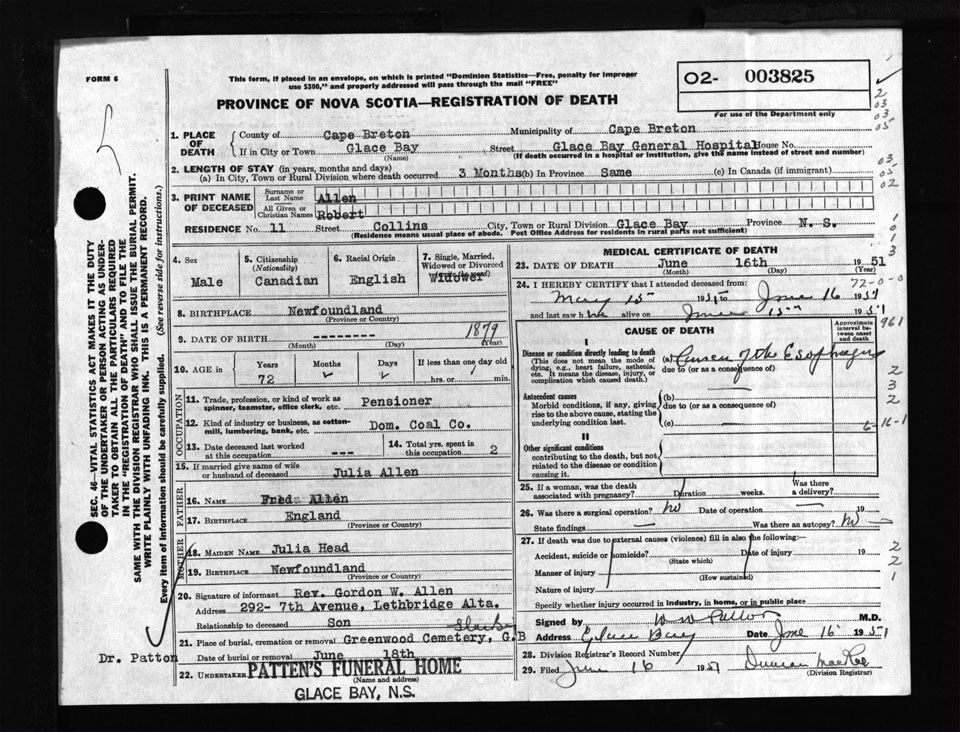 FORM 6
This form, if placed in an envelope, on which is printed "Dominion Statistics—Free, penalty for improper
use $300," and properly addressed will pass through the mail "FREE"
O2- 003825
For use of the Department only
PROVINCE OF NOVA SCOTIA—REGISTRATION OF DEATH
2
03
03
05
03
05
02
1. PLACE OF DEATH
County of Cape Breton Municipality of Cape Breton
If in City or Town Glace Bay Street Glace Bay General Hospital House No.
(Name) (If death occurred in a hospital or institution, give the name instead of street and number)
2. LENGTH OF STAY (in years, months and days)
(a) In City, Town or Rural Division where death occurred 3 Months (b) In Province Same (c) In Canada (if immigrant)
3. PRINT NAME OF DECEASED
Surname or Last Name Allen
All Given or Christian Names Robert
RESIDENCE No. 11 Street Collins City, Town or Rural Division Glace Bay Province N. S.
(Residence means usual place of abode. Post Office Address for residents in rural parts not sufficient)
SEC. 46—VITAL STATISTICS ACT MAKES IT THE DUTY
OF THE UNDERTAKER OR PERSON ACTING AS UNDER-
TAKER TO OBTAIN ALL THE PARTICULARS REQUIRED
IN THE "REGISTRATION OF DEATH" AND TO FILE THE
SAME WITH THE DIVISION REGISTRAR WHO SHALL ISSUE THE BURIAL PERMIT.
WRITE PLAINLY WITH UNFADING INK. THIS IS A PERMANENT RECORD.
Every item of information should be carefully supplied. (See reverse side for instructions.)
4. Sex
Male
5. Citizenship
(Nationality)
Canadian
6. Racial Origin
English
7. Single, Married,
Widowed or Divorced
Widower
8. BIRTHPLACE Newfoundland
(Province or Country)
9. DATE OF BIRTH -------- 1879
(Month) (Day) (Year)
10. AGE in
Years Months Days If less than one day old
72 hrs. or min.
OCCUPATION
11. Trade, profession, or kind of work as
spinner, teamster, office clerk, etc. Pensioner
12. Kind of industry or business, as cotton-
mill, lumbering, bank, etc. Dom. Coal Co.
13. Date deceased last worked
at this occupation ---
14. Total yrs. spent in
this occupation 2
15. If married give name of wife
or husband of deceased Julia Allen
FATHER
16. NAME Fred Allen
17. BIRTHPLACE England
(Province or Country)
MOTHER
18. MAIDEN NAME Julia Head
19. BIRTHPLACE Newfoundland
(Province or Country)
20. Signature of informant Rev. Gordon W. Allen
Address 292- 7th Avenue, Lethbridge Alta.
Relationship to deceased Son
21. Place of burial, cremation or removal Greenwood Cemetery, G.B
Date of burial or removal June 18th
22. UNDERTAKER PATTEN'S FUNERAL HOME
(Name and address)
GLACE BAY, N.S.
Dr. Patton
MEDICAL CERTIFICATE OF DEATH
23. DATE OF DEATH June 16th 1951
(Month) (Day) (Year)
24. I HEREBY CERTIFY that I attended deceased from: 72-0-0
May 15 1951 to June 16 1951
and last saw him alive on June 15 1951
CAUSE OF DEATH
Approximate
interval be-
tween onset
and death
961
I
Disease or condition directly leading to death
(This does not mean the mode of
dying, e.g., heart failure, asthenia,
etc. It means the disease, injury, or
complication which caused death.)
(a) of the Esophagus
due to (or as a consequence of)
Antecedent causes
Morbid conditions, if any, giving
rise to the above cause, stating the
underlying condition last.
(b)
due to (or as a consequence of)
(c)
2
3
2
6-16-1
II
Other significant conditions
contributing to the death, but not
related to the disease or condition
causing it.
25. If a woman, was the death
associated with pregnancy? Duration weeks. Was there
a delivery?
26. Was there a surgical operation? No Date of operation 19
State findings Was there an autopsy? No
27. If death was due to external causes (violence) fill in also the following:—
Accident, suicide or homicide? Date of injury 19
(State which)
Manner of injury
(How sustained)
Nature of injury
Specify whether injury occurred in industry, in home, or in public place
2
2
1
Signed by W W Patton M.D.
Address Glace Bay Date June 16 1951
28. Division Registrar's Record Number
29. Filed June 16 1951 Duncan MacRae
(Division Registrar)